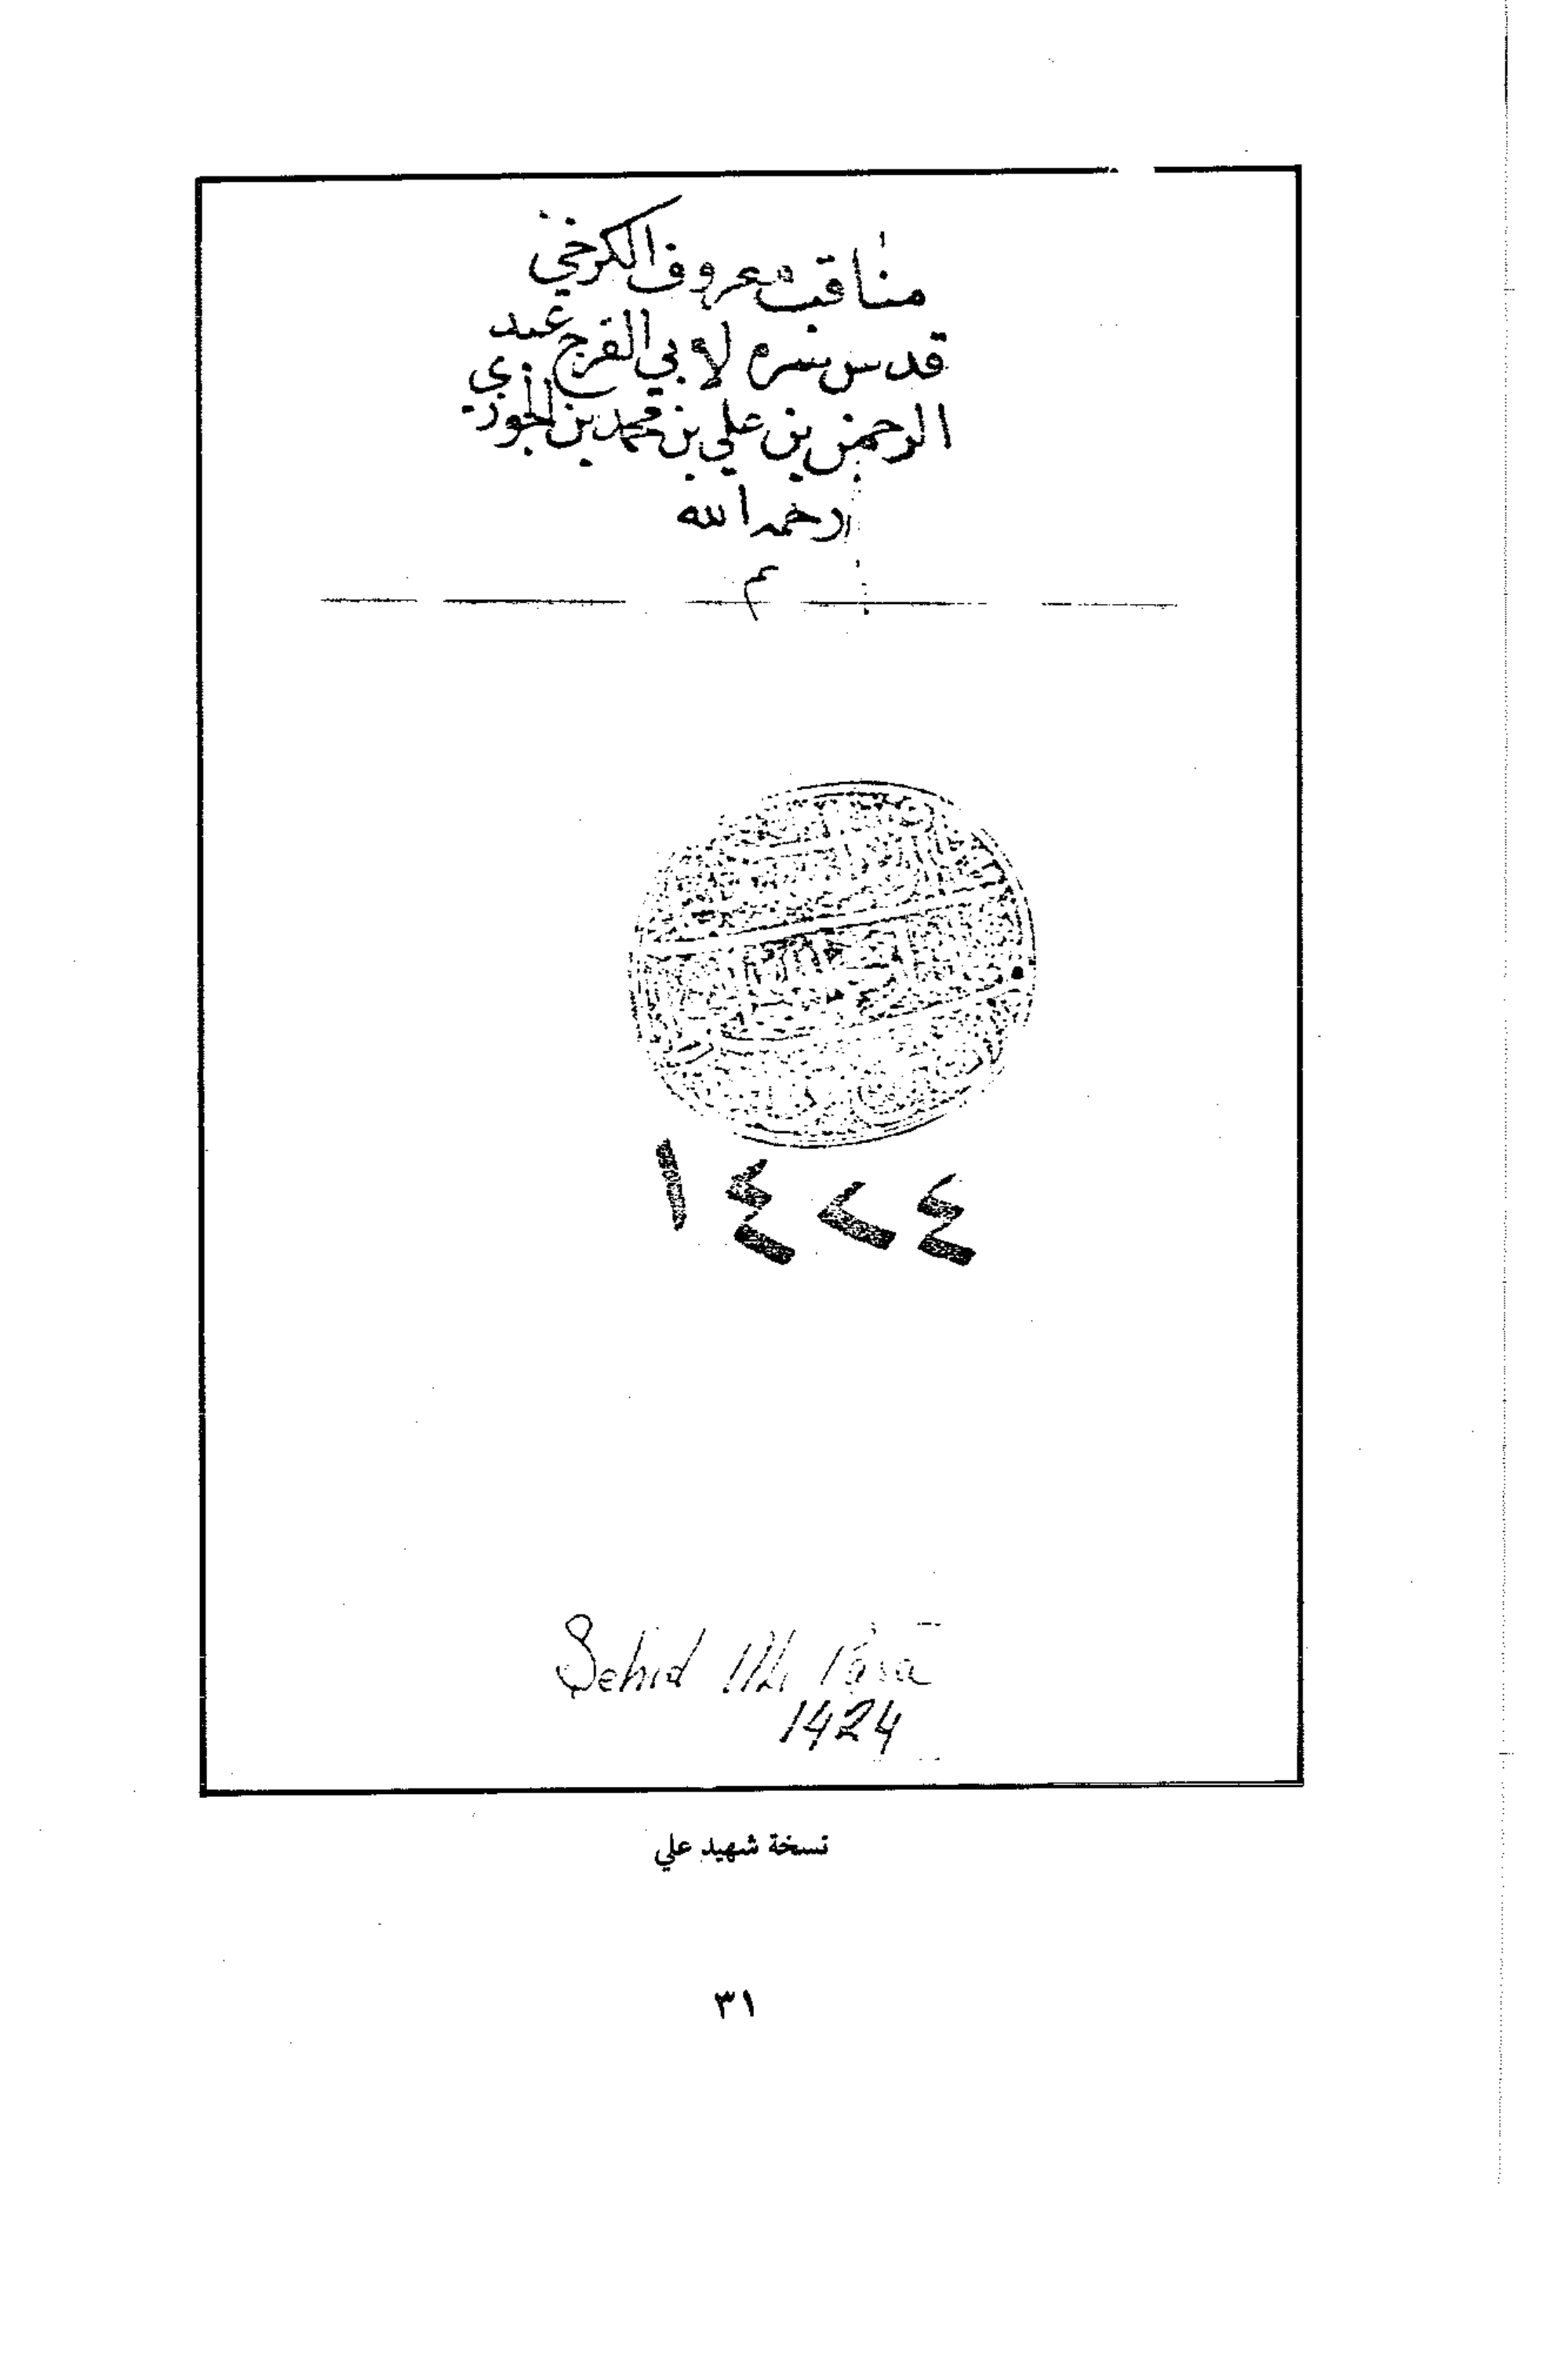 مناقب معروف الكرخي
قدس سره لابي الفرج عبد
الرحمن بن علي بن محمد بن الجوزي
رحمه الله
م
١٤٢٤
Şehid Ali Paşa
1424
نسخة شهيد علي
٣١